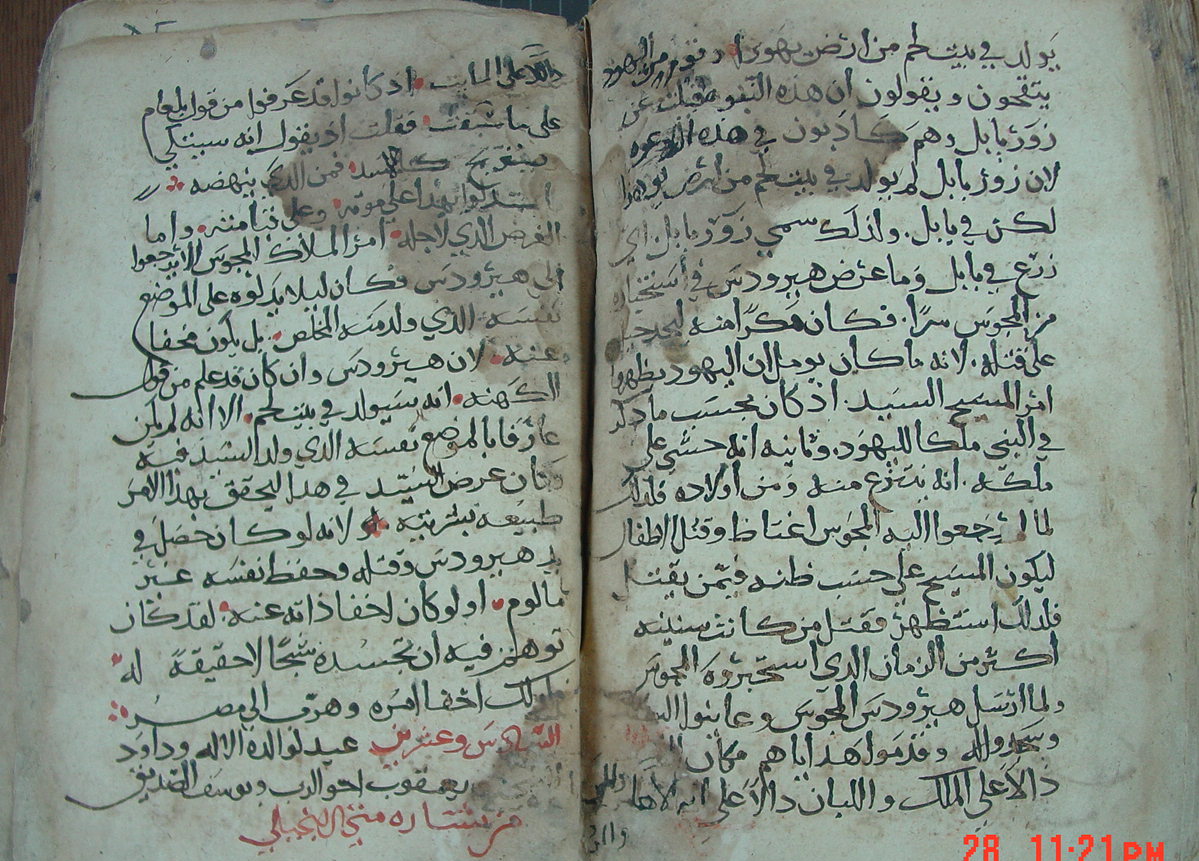 يولد في بيت لحم من ارض يهودا وقوم من اليهود
يتقحون ويقولون ان هذه النبوه قيلت عن
زوزبابل وهم كاذبون في هذه
لان زوزبابل لم يولد في بيت لحم من ارض يهودا
لكن في بابل. ولذلك سمي زوزبابل. اي
زرع في بابل وما عرض هيرودس في استخباره
من المجوس سرا. فكان مكرا منه
على قتله. لانه ما كان يومل ان اليهود يظهروا
امر المسيح السيد. اذ كان بحسب ما ذكر
في النبي ملكا لليهود. وثانيه انه خشي على
ملكه. انه ينتزع منه ومن اولاده فلذلك
لما لم يرجعوا اليه المجوس اغتاظ وقتل الاطفال
ليكون المسيح على حسب ظنه فمن يقتل
فلذلك استظهر فقتل من كانت سنينه
اكثر من الزمان الذي استخبروه المجوس
ولما ارسل هيرودس المجوس وعاينوا
وسجدوا له وقدموا هداياهم مكان
دالا على الملك واللبان دالا على انه الاها
والمر
دالا على المايت. اذ كانوا قد عرفوا من قول بلعام
على ما شرفت. فقلت اذ يقول انه سيتكي
كالاسد. فمن الذي ينهضه
استدلوا بهذا على موته وعلى قيامته. واما
الغرض الذي لاجله. امر الملاك المجوس الا يرجعوا
الى هيرودس فكان ليلا يدلوه على الموضع
نفسه الذي ولد منه المخلص. بل يكون مخفا
عنه. لان هيرودس وان كان قد علم من قول
الكهنه. انه سيولد في بيت لحم. الا انه لم يكن
عارفا بالموضع نفسه الذي ولد السيد فيه
وكان عرض السيد في هدا ليحقق بهذا الامر
طبيعه بشريته. لانه لو كان حصل في
يد هيرودس وقتله وحفظ نفسه غير
مالوم. او لو كان اخفا ذاته عنه. لقد كان
توهم فيه ان تجسده شبحا لا حقيقة له
ولذلك اخفا امره وهرب الى مصر
السادس وعشرين عيد لوالدة الاله وداود
يعقوب اخو الرب ويوسف الصديق
من بشاره متى الانجيلي
28 11:21 PM